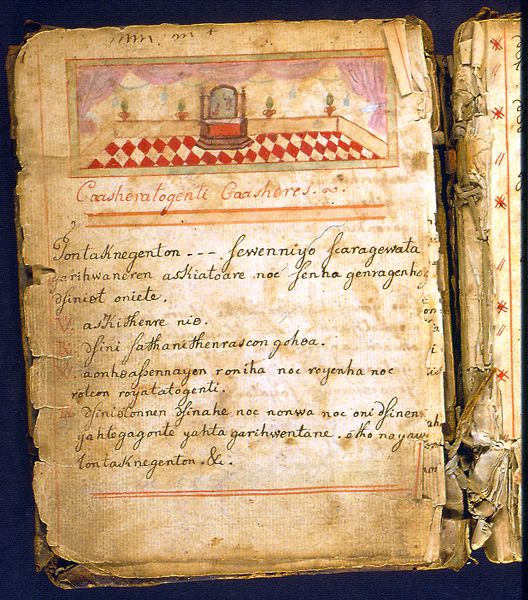 Caasheratogenti Caasheres. ~.
Tontaknegenton --- sewenniyo scaragewata
garihwaneren askiatoare noc senha genragenho
dsiniot oniete.
V. askithenre nio.
dsini sathanithenrascon gohoa.
V. aonhoassennayen roniha noc royenha noc
rotcon royatatogenti.
R. dsiniotonnen dsinahe noc nonwa noc oni dsinen
yahtegagonte yahta garihwentane. etho nayaw
tontaknegenton. &.